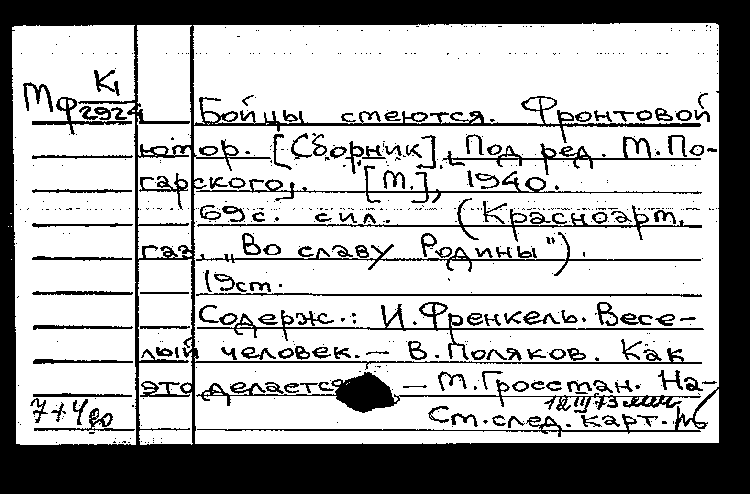 Мф К1/2924
Бойцы смеются. Фронтовой
юмор. [Сборник]. Под ред. М. По-
гарского. [М.], 1940.
69 с. с ил. (Красноарм.
газ. „Во славу Родины").
19 ст.
Содерж.: И. Френкель. Весе-
лый человек. — В. Поляков. Как
это делается — М. Гросстан. На-
7+4
12 III 73
См. след. карт.